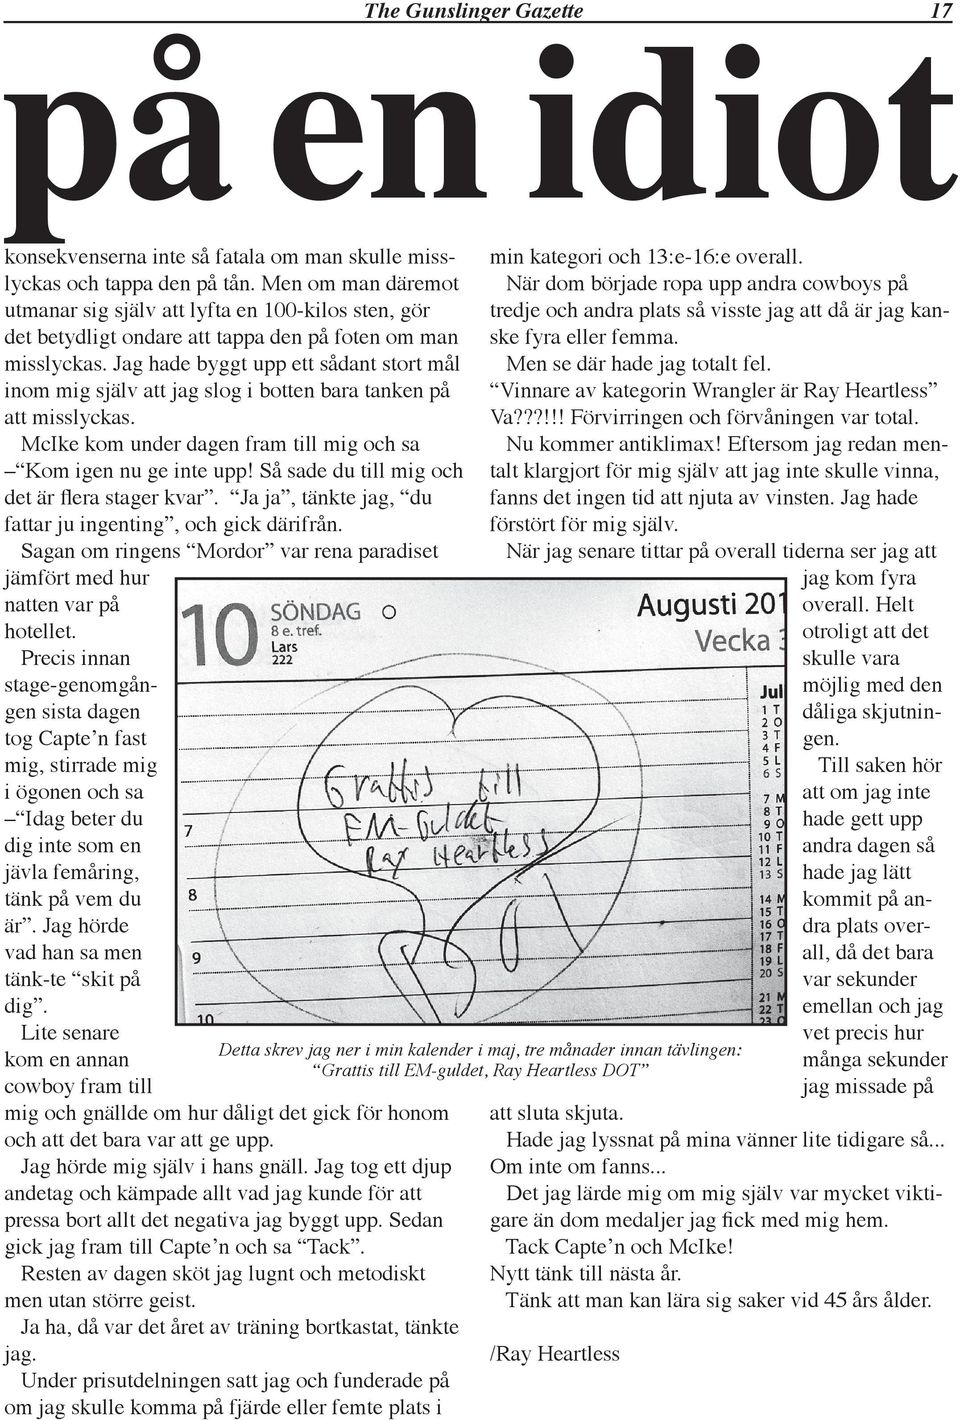 The Gunslinger Gazette 17
på en idiot
konsekvenserna inte så fatala om man skulle miss-
lyckas och tappa den på tån. Men om man däremot
utmanar sig själv att lyfta en 100-kilos sten, gör
det betydligt ondare att tappa den på foten om man
misslyckas. Jag hade byggt upp ett sådant stort mål
inom mig själv att jag slog i botten bara tanken på
att misslyckas.
McIke kom under dagen fram till mig och sa
– “Kom igen nu ge inte upp! Så sade du till mig och
det är flera stager kvar”. “Ja ja”, tänkte jag, “du
fattar ju ingenting”, och gick därifrån.
Sagan om ringens “Mordor” var rena paradiset
jämfört med hur
natten var på
hotellet.
Precis innan
stage-genomgån-
gen sista dagen
tog Capte’n fast
mig, stirrade mig
i ögonen och sa
– “Idag beter du
dig inte som en
jävla femåring,
tänk på vem du
är”. Jag hörde
vad han sa men
tänk-te “skit på
dig”.
Lite senare
kom en annan
cowboy fram till
mig och gnällde om hur dåligt det gick för honom
och att det bara var att ge upp.
Jag hörde mig själv i hans gnäll. Jag tog ett djup
andetag och kämpade allt vad jag kunde för att
pressa bort allt det negativa jag byggt upp. Sedan
gick jag fram till Capte’n och sa “Tack”.
Resten av dagen sköt jag lugnt och metodiskt
men utan större geist.
Ja ha, då var det året av träning bortkastat, tänkte
jag.
Under prisutdelningen satt jag och funderade på
om jag skulle komma på fjärde eller femte plats i
min kategori och 13:e-16:e overall.
När dom började ropa upp andra cowboys på
tredje och andra plats så visste jag att då är jag kan-
ske fyra eller femma.
Men se där hade jag totalt fel.
“Vinnare av kategorin Wrangler är Ray Heartless”
Va???!!! Förvirringen och förvåningen var total.
Nu kommer antiklimax! Eftersom jag redan men-
talt klargjort för mig själv att jag inte skulle vinna,
fanns det ingen tid att njuta av vinsten. Jag hade
förstört för mig själv.
När jag senare tittar på overall tiderna ser jag att
jag kom fyra
overall. Helt
otroligt att det
skulle vara
möjlig med den
dåliga skjutnin-
gen.
Till saken hör
att om jag inte
hade gett upp
andra dagen så
hade jag lätt
kommit på an-
dra plats over-
all, då det bara
var sekunder
emellan och jag
vet precis hur
många sekunder
jag missade på
att sluta skjuta.
Hade jag lyssnat på mina vänner lite tidigare så...
Om inte om fanns...
Det jag lärde mig om mig själv var mycket vikti-
gare än dom medaljer jag fick med mig hem.
Tack Capte’n och McIke!
Nytt tänk till nästa år.
Tänk att man kan lära sig saker vid 45 års ålder.
/Ray Heartless
10 SÖNDAG
8 e. tref.
Lars
222
Augusti 201
Vecka 3
Grattis till
EM-Guldet
Ray Heartless
7
8
9
10
Jul
1 T
2 O
3 T
4 F
5 L
6 S
7 M
8 T
9 O
10 T
11 F
12 L
13 S
14 M
15 T
16 O
17 T
18 F
19 L
20 S
21 M
22 T
23 O
Detta skrev jag ner i min kalender i maj, tre månader innan tävlingen:
“Grattis till EM-guldet, Ray Heartless DOT”